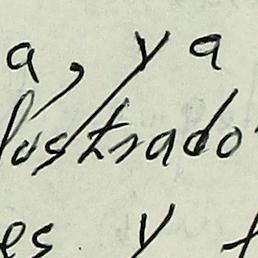 a, ya
lustrado
es y